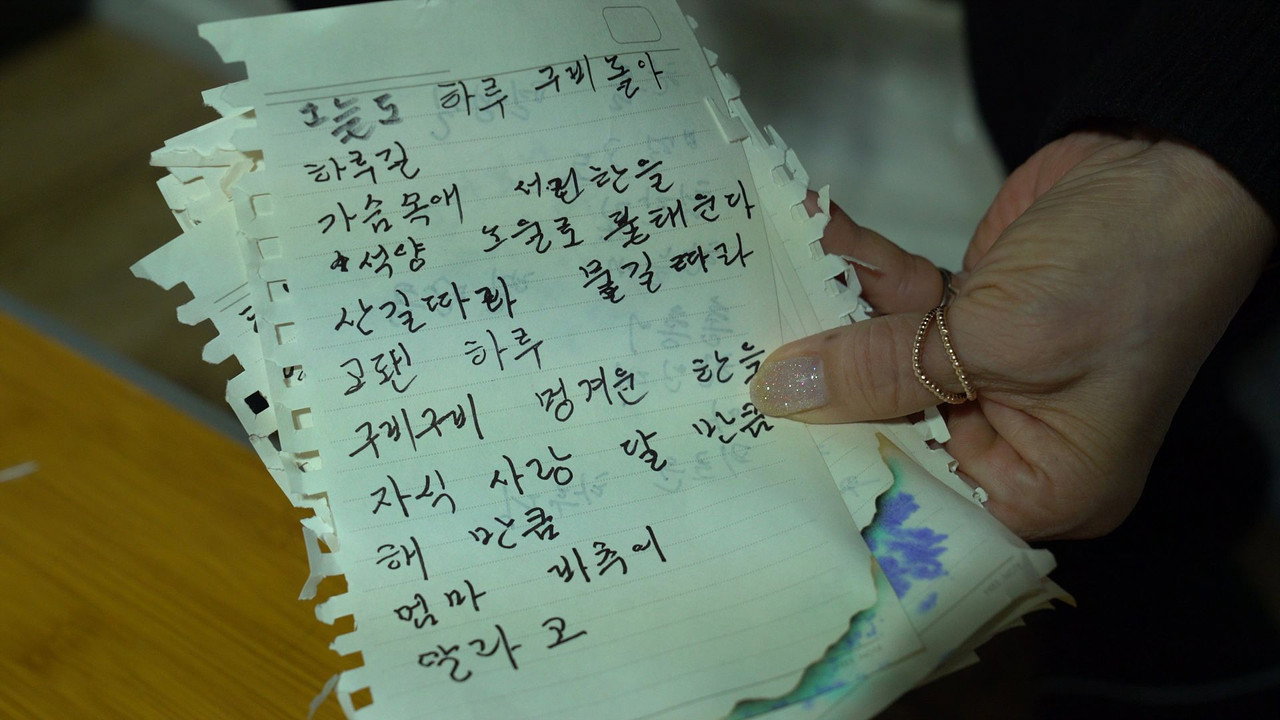 오늘도 하루 구비돌아
하루길
가슴목애 서린한을
석양 노을로 불태운다
산길따라 물길따라
고땐 하루
구비구비 멍겨운 한을
자식 사랑 달 만큼
해 만큼
엄마 바추어
달라고